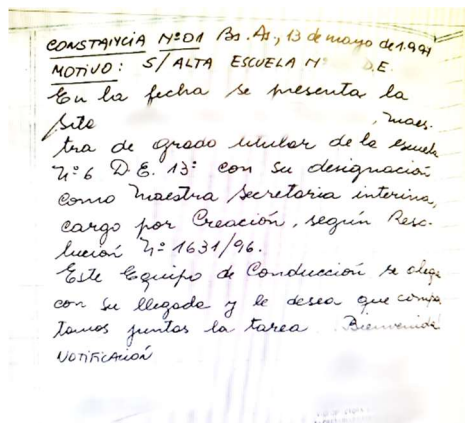 CONSTANCIA Nº01 Bs. As., 13 de mayo de 1.997
MOTIVO: S/ ALTA ESCUELA Nº D.E.
En la fecha se presenta la
Srta , maes-
tra de grado titular de la escuela
Nº 6 D.E. 13º con su designación
como maestra secretaria interina,
cargo por Creación, según Reso-
lución Nº 1631/96.
Este Equipo de Conducción se alegra
con su llegada y le desea que compar
tamos juntas la tarea. Bienvenida
NOTIFICACIÓN